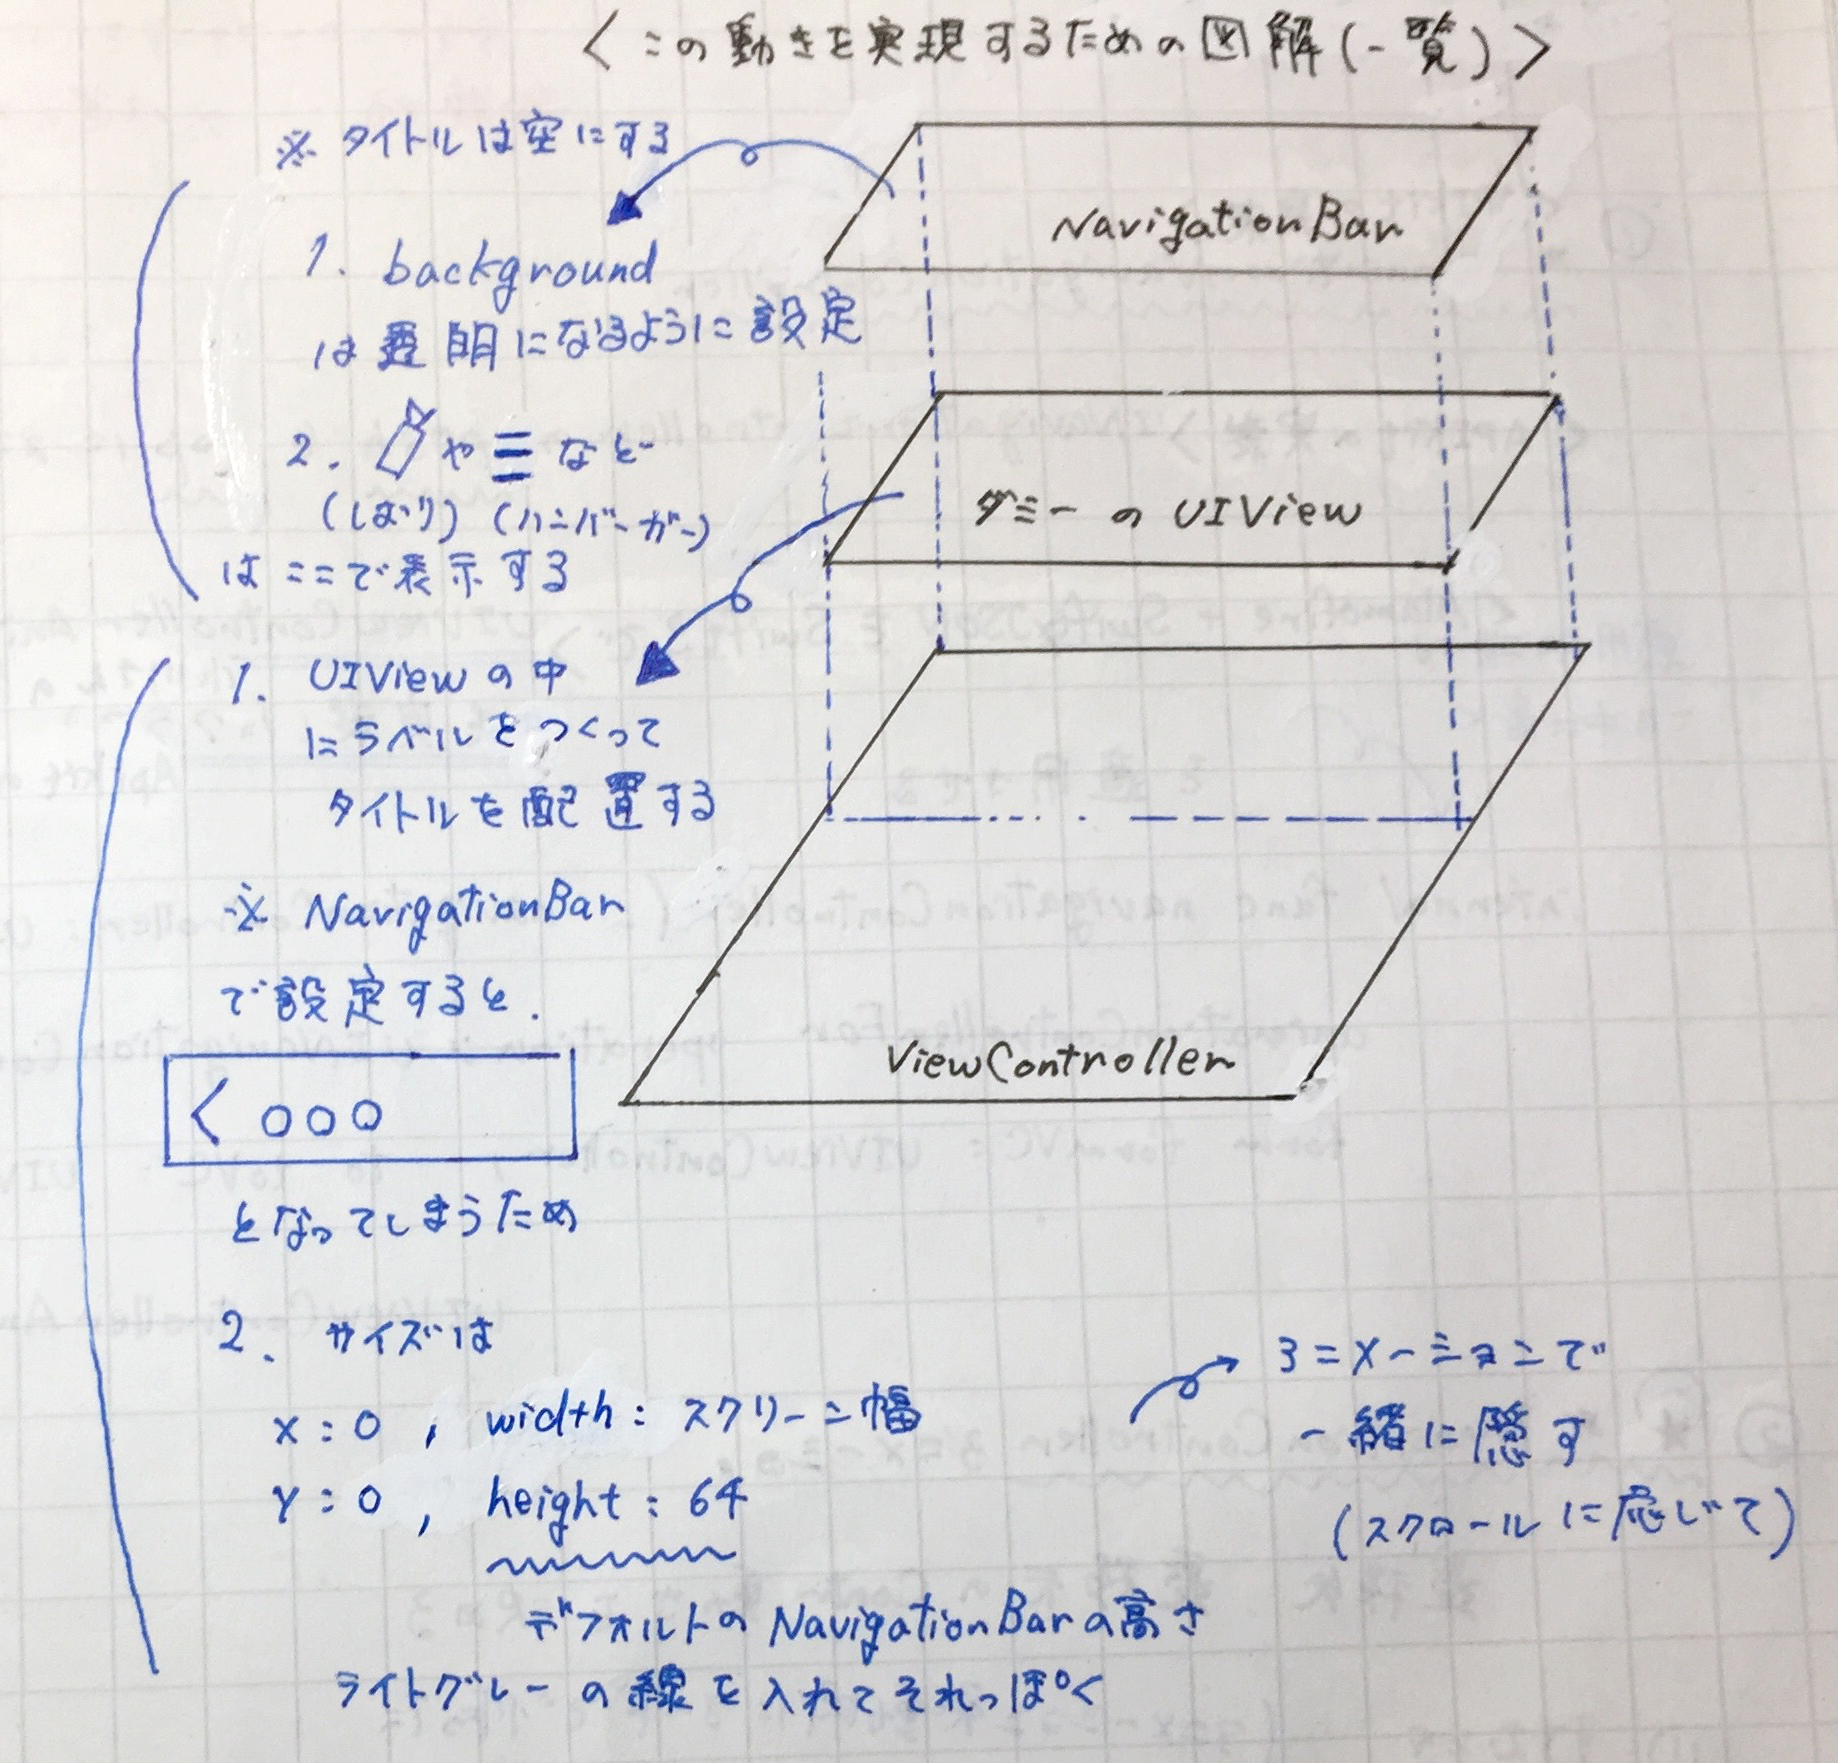 <この動きを実現するための図解(一覧)>
※ タイトルは空にする
1. background
は透明になるように設定
2. や≡など
(しおり) (ハンバーガー)
はここで表示する
NavigationBar
ダミーのUIView
ViewController
1. UIViewの中
にラベルをつくって
タイトルを配置する
※ NavigationBar
で設定すると、
< ○○○
となってしまうため
2. サイズは
x:0 , width:スクリーン幅
y:0 , height:64
デフォルトのNavigationBarの高さ
ライトグレーの線を入れてそれっぽく
アニメーションで
一緒に隠す
(スクロールに応じて)